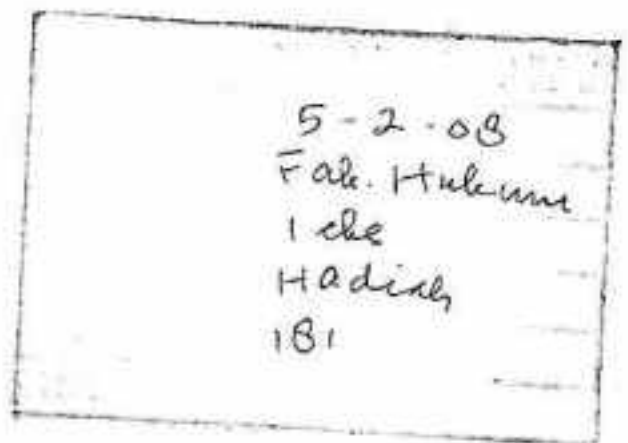 5-2-08
Fak. Hukum
1 eks
Hadiah
181